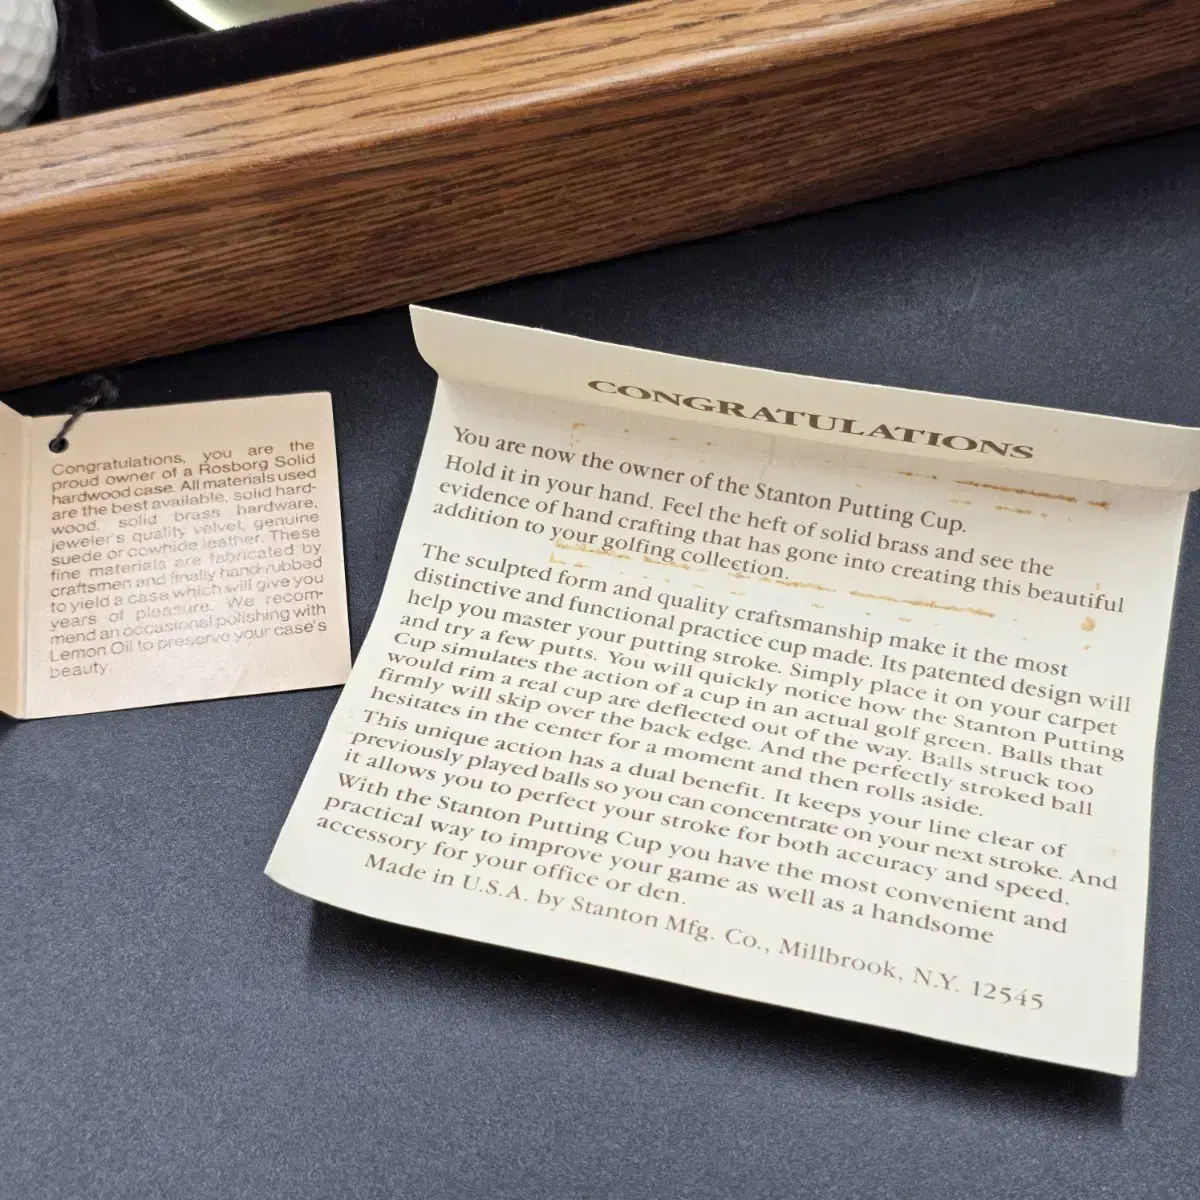 Congratulations, you are the
proud owner of a Rosborg Solid
hardwood case. All materials used
are the best available, solid hard-
wood, solid brass hardware,
jeweler's quality velvet, genuine
suede or cowhide leather. These
fine materials are fabricated by
craftsmen and finally hand-rubbed
to yield a case which will give you
years of pleasure. We recom-
mend an occasional polishing with
Lemon Oil to preserve your case's
beauty.
CONGRATULATIONS
You are now the owner of the Stanton Putting Cup.
Hold it in your hand. Feel the heft of solid brass and see the
evidence of hand crafting that has gone into creating this beautiful
addition to your golfing collection.
The sculpted form and quality craftsmanship make it the most
distinctive and functional practice cup made. Its patented design will
help you master your putting stroke. Simply place it on your carpet
and try a few putts. You will quickly notice how the Stanton Putting
Cup simulates the action of a cup in an actual golf green. Balls that
would rim a real cup are deflected out of the way. Balls struck too
firmly will skip over the back edge. And the perfectly stroked ball
hesitates in the center for a moment and then rolls aside.
This unique action has a dual benefit. It keeps your line clear of
previously played balls so you can concentrate on your next stroke. And
it allows you to perfect your stroke for both accuracy and speed.
With the Stanton Putting Cup you have the most convenient and
practical way to improve your game as well as a handsome
accessory for your office or den.
Made in U.S.A. by Stanton Mfg. Co., Millbrook, N.Y. 12545